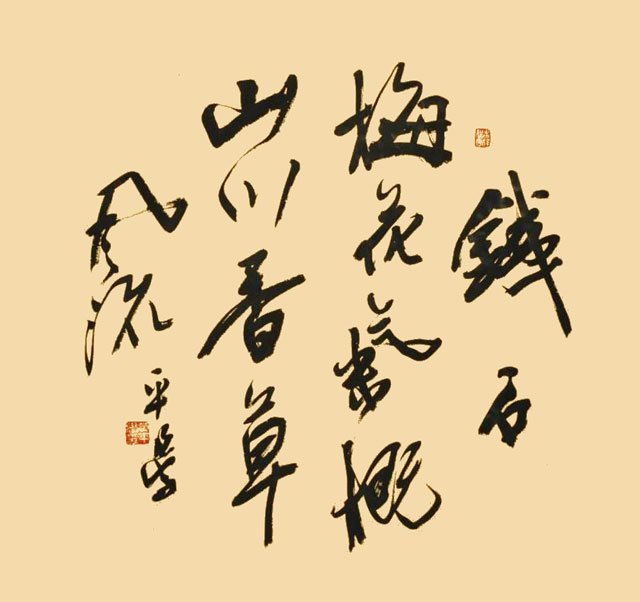 鐵石
梅花氣概
山川香草
風流
平